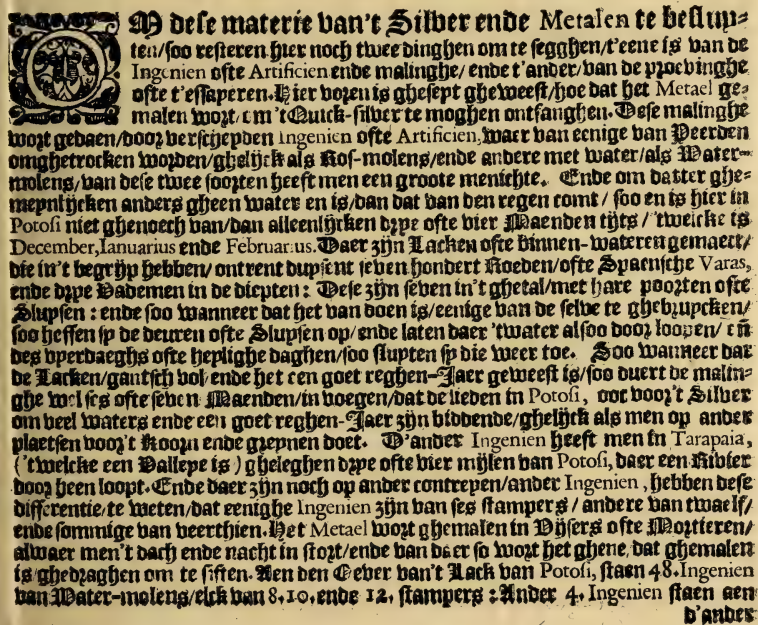 OM dese materie van't Silver ende Metalen te besluy-
ten/soo resteren hier noch twee dinghen om te segghen/t'eene is van de
Ingenien ofte Artificien ende malinghe/ ende t'ander/van de proevinghe
ofte t'essaperen. Hier voren is gheseyt gheweest/hoe dat het Metael ge-
malen wort/ om 't Quick-silver te moghen ontfanghen. Dese malinghe
wort gedaen/door verscheyden Ingenien ofte Artificien, waer van eenige van Peerden
omghetrocken worden/ghelijck als Ros-molens/ende andere met water/als Water-
molens/van dese twee soorten heeft men een groote menichte. Ende om datter ghe-
meynlijcken anders gheen water en is/dan dat van den regen comt / soo en is hier in
Potosi niet ghenoech van/dan alleenlijcken drye ofte vier Maenden tijts / 'twelcke is
December, Ianuarius ende Februarius. Daer zijn Lacken ofte binnen-wateren gemaect/
die in't begrijp hebben/ ontrent duysent seven hondert Roeden/ofte Spaensche Varas,
ende drye Vademen in de diepten : Dese zijn seven in't ghetal/met hare poorten ofte
Sluysen : ende soo wanneer dat het van doen is/eenige van de selve te ghebruycken/
soo heffen sy de deuren ofte Sluysen op/ende laten daer 'twater alsoo door loopen/ en
des vyerdaeghs ofte heylighe daghen/soo sluyten sy die weer toe. Soo wanneer dat
de Lacken/gantsch vol ende het een goet reghen-Jaer geweest is/soo duert de malin-
ghe wel ses ofte seven Maenden/in voegen/dat de lieden in Potosi, ooc voor't Silver
om veel waters ende een goet reghen-Jaer zijn biddende/ghelijck als men op ander
plaetsen voor't Koorn ende greynen doet. D'ander Ingenien heeft men in Tarapaia,
('twelcke een Valleye is) gheleghen drye ofte vier mijlen van Potosi, daer een Rivier
door heen loopt. Ende daer zijn noch op ander contreyen/ander Ingenien, hebben dese
differentie/te weten/dat eenighe Ingenien zijn van ses stampers / andere van twaelf/
ende sommige van veerthien. Het Metael wort ghemalen in Vijsers ofte Mortieren/
alwaer men't dach ende nacht in stort/ende van daer so wort het ghene dat ghemalen
is ghedraghen om te siften. Aen den Oever van't Lack van Potosi, staen 48. Ingenien
van Water-molens/elck van 8. 10. ende 12. stampers : Ander 4. Ingenien staen aen
d'ander